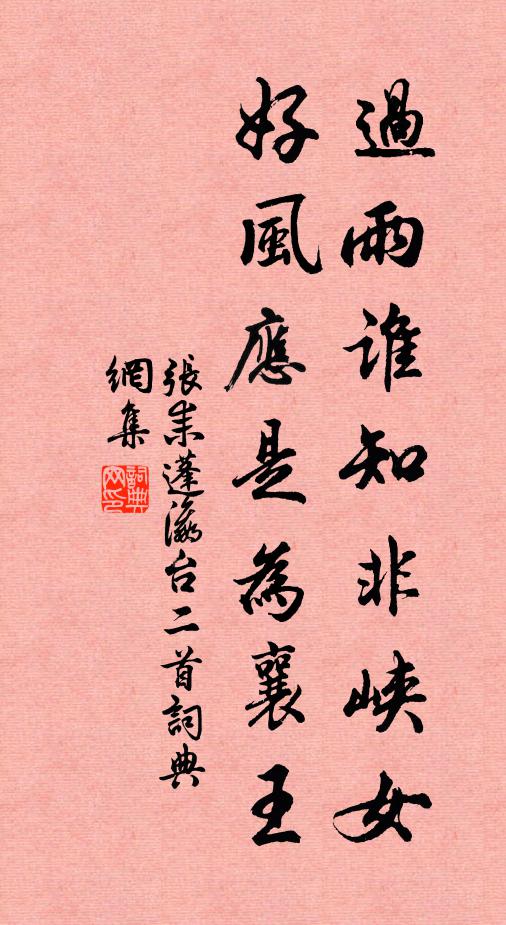 過雨誰知非峽女
好風應是為襄王
張耒蓬瀛台二首詞典
網集
詞典網印